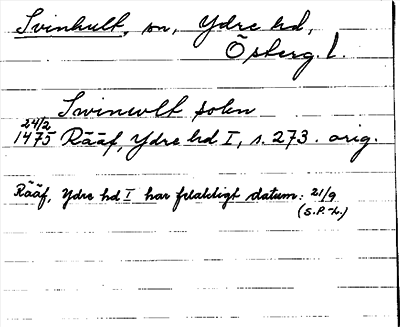 Svinhult, sn, Ydre hd,
Österg. l.
Swinwlt sokn
24/2
1475 Rääf, Ydre hd I, s. 273. orig.
Rääf, Ydre hd I har felaktigt datum: 21/9
(S.P.-L.)